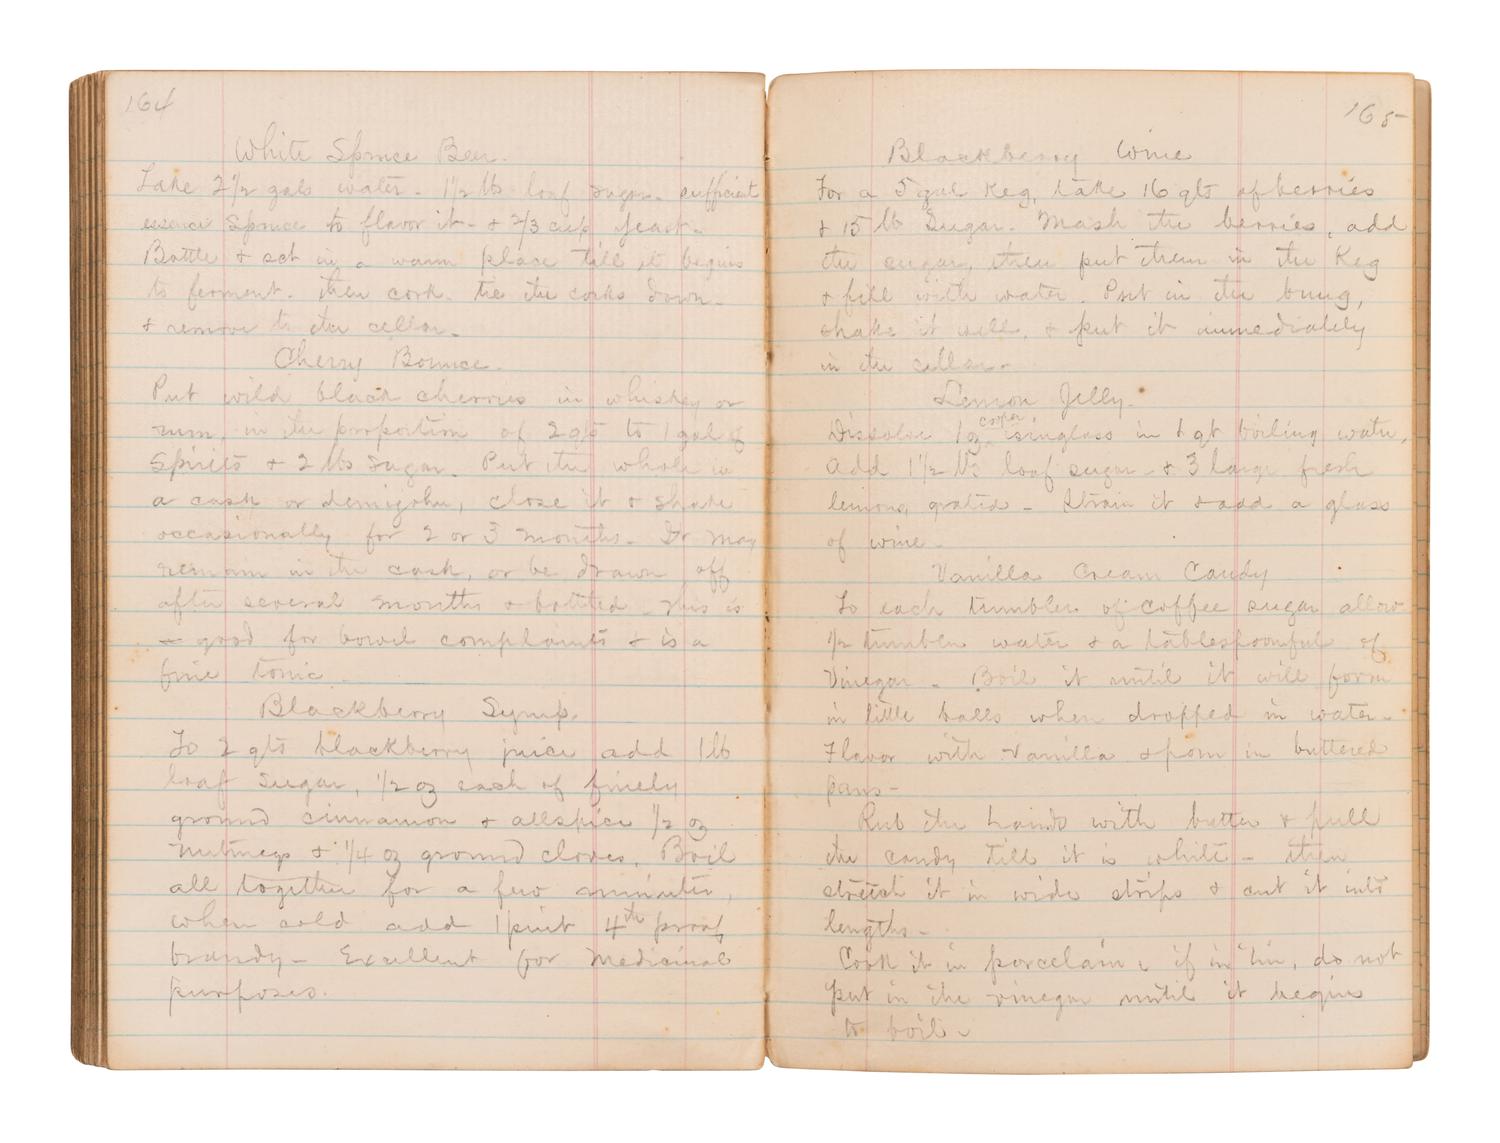 164
White Spruce Beer.
Take 2 1/2 gals water - 1 1/2 lb loaf sugar - sufficient
essence Spruce to flavor it - & 2/3 cup yeast -
Bottle & set in a warm place till it begins
to ferment. then cork. tie the corks down -
& remove to the cellar -
Cherry Bounce.
Put wild black cherries in whiskey or
rum, in the proportion of 2 qts to 1 gal of
Spirits & 2 lbs sugar. Put the whole in
a cask or demijohn, close it & shake
occasionally for 2 or 3 months - It may
remain in the cask, or be drawn off
after several months & bottled - This is
good for bowel complaints & is a
fine tonic -
Blackberry Syrup.
To 2 qts blackberry juice add 1 lb
loaf sugar, 1/2 oz each of finely
ground cinnamon & allspice 1/2 oz
nutmegs & 1/4 oz ground cloves, Boil
all together for a few minutes,
when cold add 1 pint 4th proof
brandy - Excellent for Medicinal
purposes.
165
Blackberry Wine
For a 5 gal Keg, take 16 qts of berries
& 15 lb Sugar. Mash the berries, add
the sugar, then put them in the Keg
& fill with water. Put in the bung,
shake it well, & put it immediately
in the cellar -
Lemon Jelly.
Dissolve 1 oz cooper isinglass in 1 qt boiling water,
Add 1 1/2 lbs loaf sugar & 3 large fresh
lemons, grated - Strain it & add a glass
of wine -
Vanilla Cream Candy
To each tumbler of coffee sugar allow
1/2 tumbler water & a tablespoonful of
Vinegar - Boil it until it will form
in little balls when dropped in water -
Flavor with Vanilla & pour in buttered
pans -
Rub the hands with butter & pull
the candy till it is white - then
stretch it in wide strips & cut it into
lengths -
Cook it in porcelain, if in tin, do not
put in the vinegar until it begins
to boil -